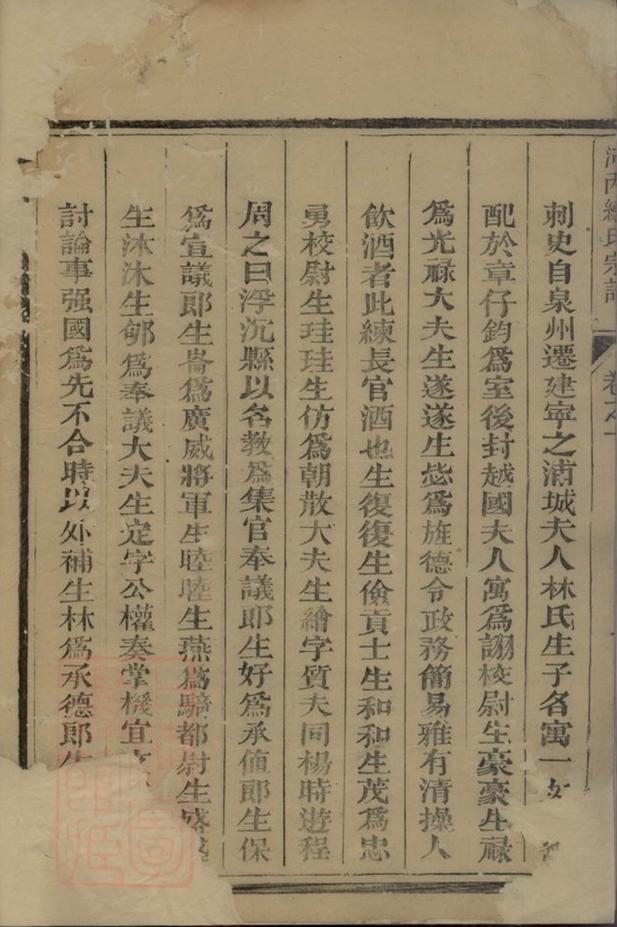 河西練氏宗譜 卷之一
刺史自泉州遷建寧之浦城夫人林氏生子名寓一女
配於章仔鈞爲室後封越國夫人寓爲詡校尉生豪豪生祿
爲光祿大夫生遂遂生毖爲旌德令政務簡易雅有清操人
飲酒者此練長官酒也生復復生儉貢士生和和生茂爲忠
勇校尉生珪珪生仿爲朝散大夫生繪字質夫同楊時遊程
周之曰浮沉縣以名教爲集官奉議郎生好爲承值郎生保
爲宣議郎生崙爲廣威將軍生睦睦生燕爲騎都尉生盛盛
生沐沐生郇爲奉議大夫生定字公權奏掌機宜文
討論事强國爲先不合時以外補生林爲承德郎生